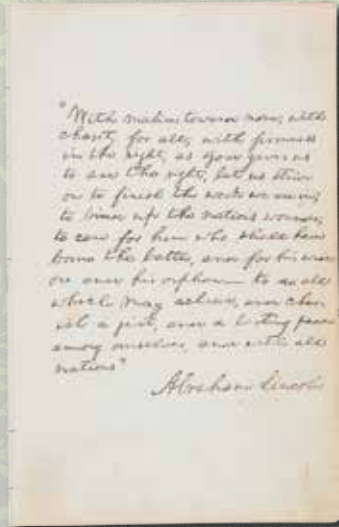 "With malice toward none, with
charity for all, with firmness
in the right, as god gives us
to see the right, let us strive
on to finish the work we are in;
to bind up the nations wounds;
to care for him who shall have
borne the battle, and for his widow
and his orphan— to do all
which may achieve, and cher
ish a just, and a lasting peace
among ourselves, and with all
nations"
Abraham Lincoln